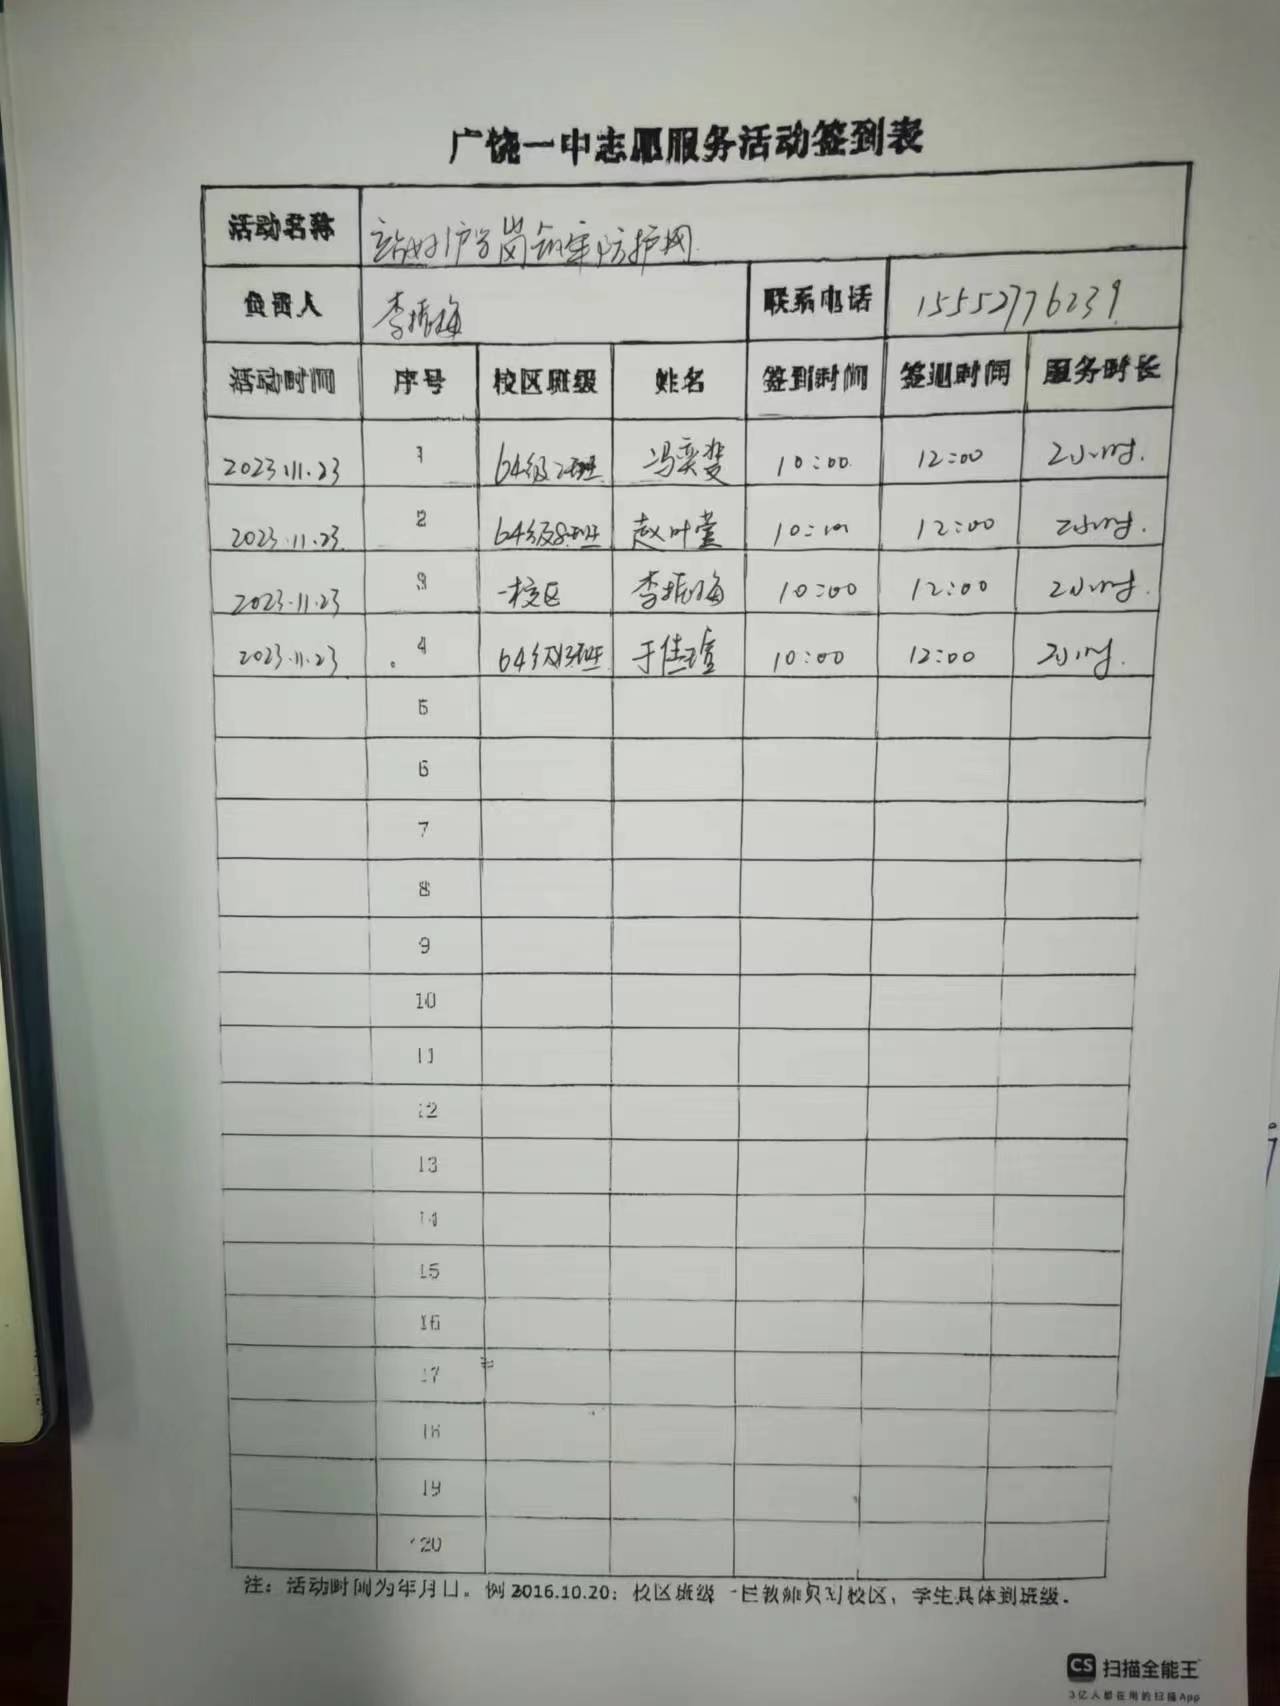 广饶一中志愿服务活动签到表
活动名称 站好护学岗 织牢防护网
负责人 李振海 联系电话 15552776239
活动时间 序号 校区班级 姓名 签到时间 签退时间 服务时长
2023.11.23 1 64级2班 冯奕斐 10:00 12:00 2小时.
2023.11.23 2 64级8班 赵叶萱 10:00 12:00 2小时.
2023.11.23 3 一校区 李振海 10:00 12:00 2小时.
2023.11.23 4 64级13班 于佳瑄 10:00 12:00 2小时.
5
6
7
8
9
10
11
12
13
14
15
16
17
18
19
20
注：活动时间为年月日。例2016.10.20；校区班级一栏教师只到校区，学生具体到班级.
CS 扫描全能王
3亿人都在用的扫描App